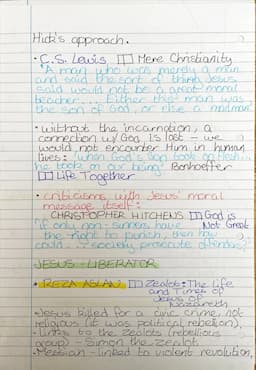 Hick's approach.
• C.S. Lewis Mere Christianity
"A man who was merely a man
and said the sort of things Jesus
said would not be a great moral
teacher... Either this man was
the son of God, or else a madman"
• without the incarnation, a
connection w/ God is lost - we
would not encounter Him in human
lives: "when God's Son took on flesh...
he took on our being" Bonhoeffer
Life Together
• criticisms with Jesus' moral
message itself:
CHRISTOPHER HITCHENS God is
"if only non-sinners have Not Great
the right to punish, then how
could... society prosecute offenders?"
JESUS - LIBERATOR
• REZA ASLAN Zealot: The Life
and Times of
Jesus of
Nazareth
• Jesus killed for a civic crime, not
religious (it was political rebellion),
• Links to the zealots (rebellious
group) - Simon the Zealot
• Messiah - linked to violent revolution,